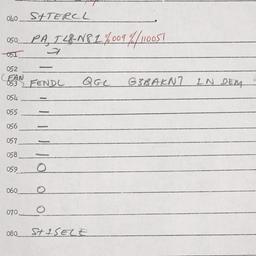 040 S+TERCL
050 PA, IL8-N81 %009 %/110051
051 →
052 —
053 FENDL QGL G3BAKN7 IN DEM
054 —
055 —
056 —
057 —
058 —
059 O
060 O
070 O
080 S+15ELE